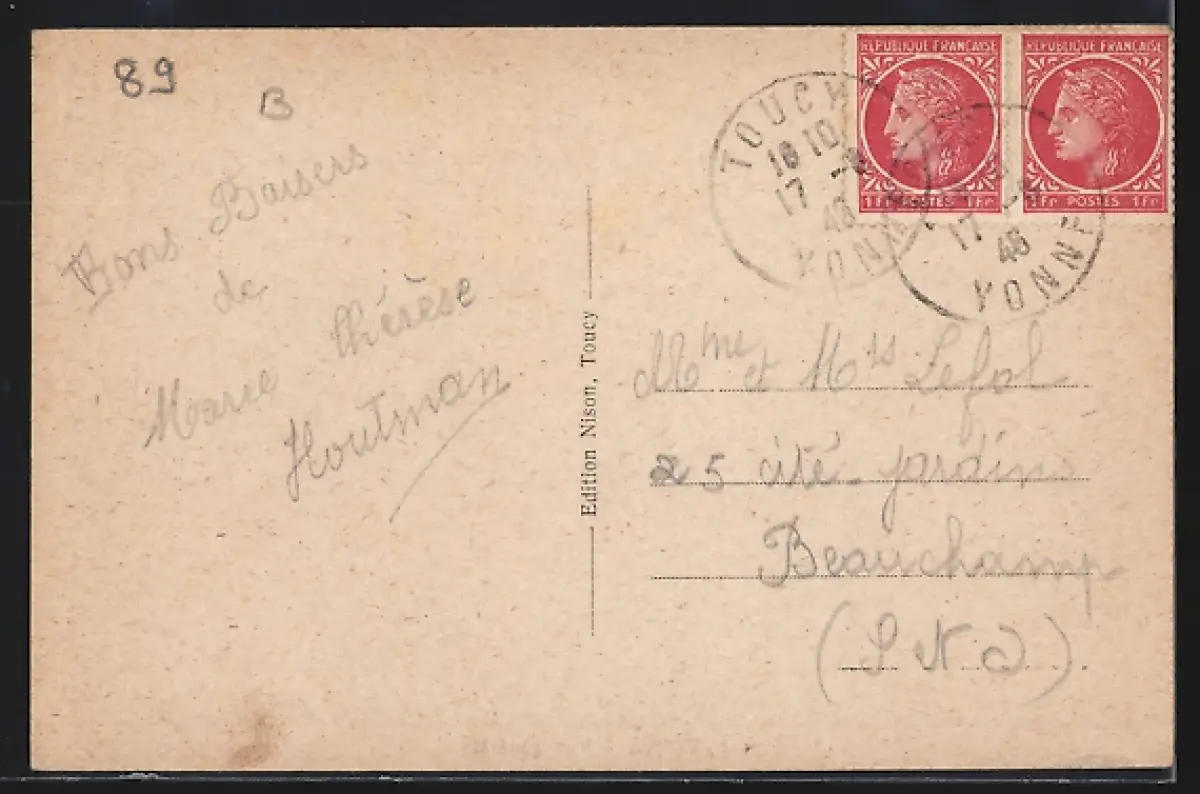 89
B
Bons Baisers
de
Marie Thérèse
Houtman
Edition Nison, Toucy
RÉPUBLIQUE FRANÇAISE
1Fr POSTES 1Fr
RÉPUBLIQUE FRANÇAISE
1Fr POSTES 1Fr
TOUCY
18 10
17
46
YONNE
17
46
YONNE
Mme et Mrs Lefol
25 cité jardins
Beauchamp
(S N O).